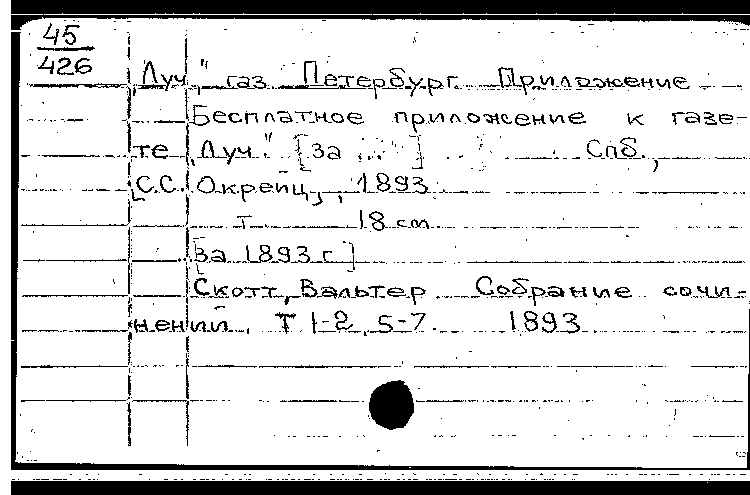 45
426
„Луч", газ Петербург. Приложение
Бесплатное приложение к газе-
те „Луч". [за ... ] Спб.,
[С.С. Окрейц], 1893.
т. 18 см.
[за 1893 г.]
Скотт, Вальтер Собрание сочи-
нений. Т 1-2, 5-7. 1893.